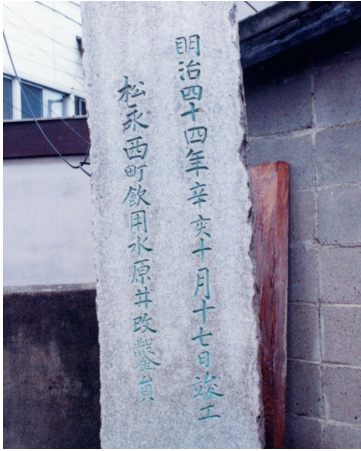 明治四十四年辛亥十月十七日竣工
松永西町飲用水原井改鑿金員